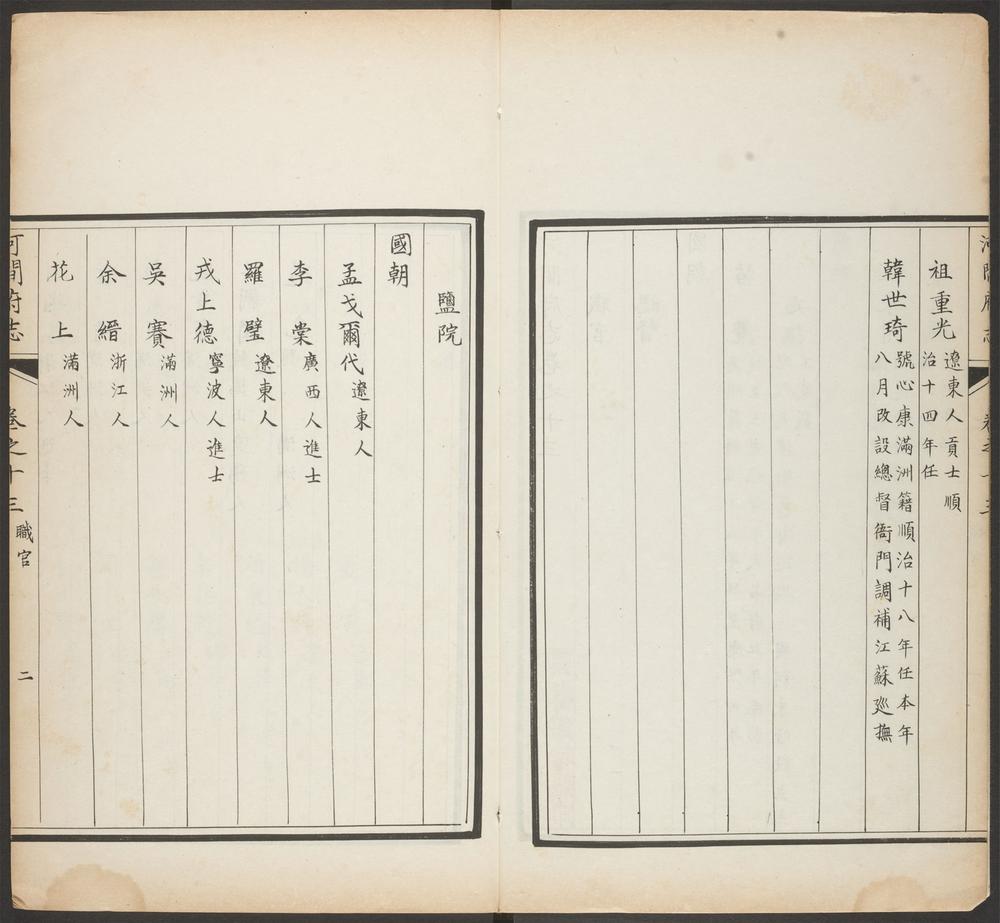 河間府志
卷之十三
祖重光
遼東人貢士順
治十四年任
韓世琦
號心康滿洲籍順治十八年任本年
八月改設總督衙門調補江蘇廵撫
鹽院
國朝
孟戈爾代遼東人
李棠廣西人進士
羅璧遼東人
戎上德寧波人進士
吳賽滿洲人
余縉浙江人
花上滿洲人
河間府志
卷之十三
職官
二